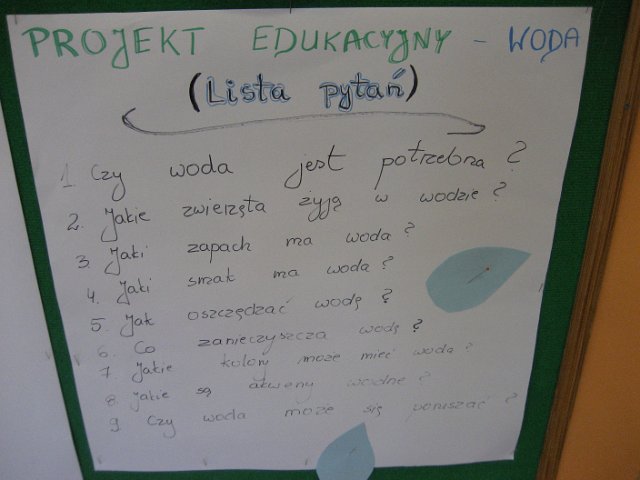 PROJEKT EDUKACYJNY - WODA
(Lista pytań)
1 Czy woda jest potrzebna ?
2. Jakie zwierzęta żyją w wodzie ?
3. Jaki zapach ma woda ?
4. Jaki smak ma woda ?
5. Jak oszczędzać wodę ?
6. Co zanieczyszcza wodę ?
7. Jakie kolory może mieć woda ?
8. Jakie są akweny wodne ?
9. Czy woda może się poruszać ?